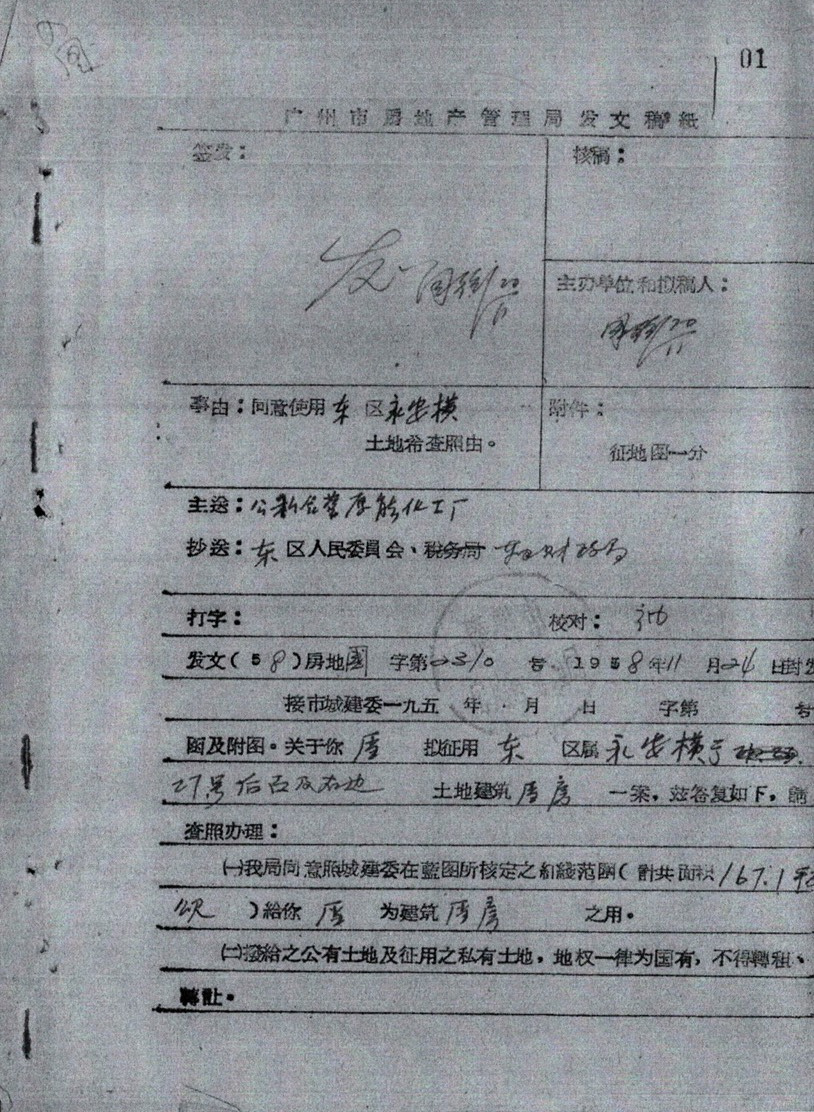 01
广州市房地产管理局发文稿紙
签发：
核稿：
发
主办单位和拟稿人：
事由：同意使用东区永安横
土地希查照由。
附件：
征地图一分
主送：公私合营厚能化工厂
抄送：东区人民委員会、税务局
打字：
校对：
发文(58)房地 字第2310号 1958年11月24日封发
接市城建委一九五 年 月 日 字第 号
函及附图。关于你 拟征用东区属永安横
27号后 及右边 土地建筑 房一案，茲答复如下，請
查照办理：
㈠我局同意照城建委在藍图所核定之紅綫范圍(計共面积167.1平
公尺)給你 为建筑 房之用。
㈡撥給之公有土地及征用之私有土地，地权一律为国有，不得轉租、
轉让。